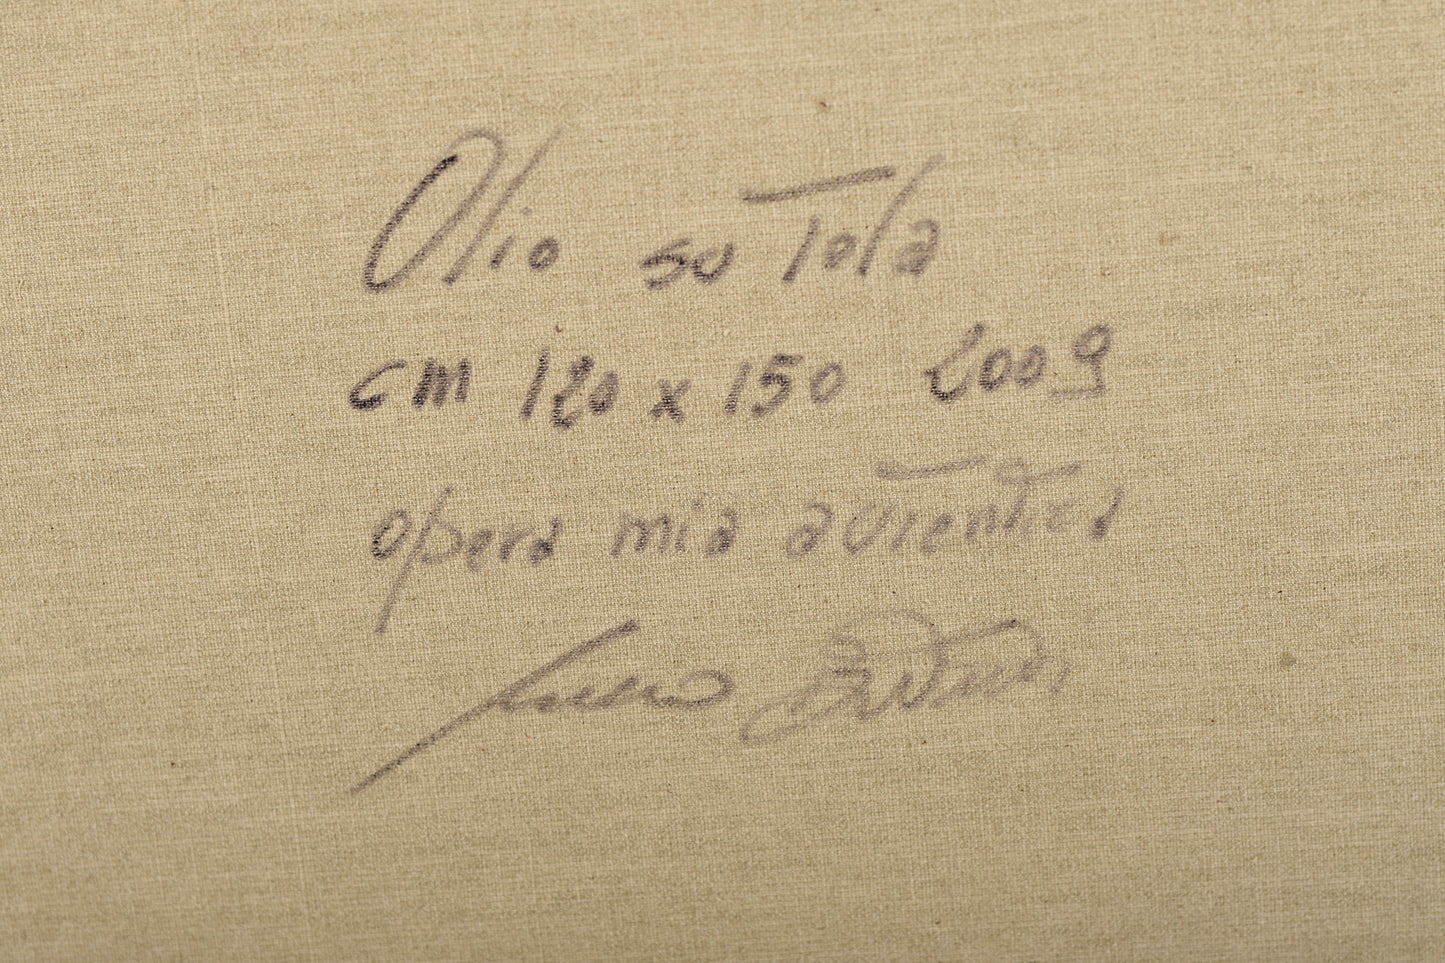 Olio su Tela
cm 120 x 150 2009
opera mia autentica